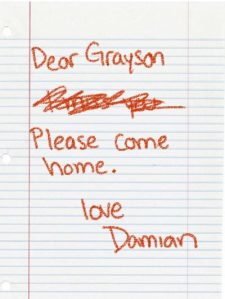 Dear Grayson
Please come
home.
love
Damian